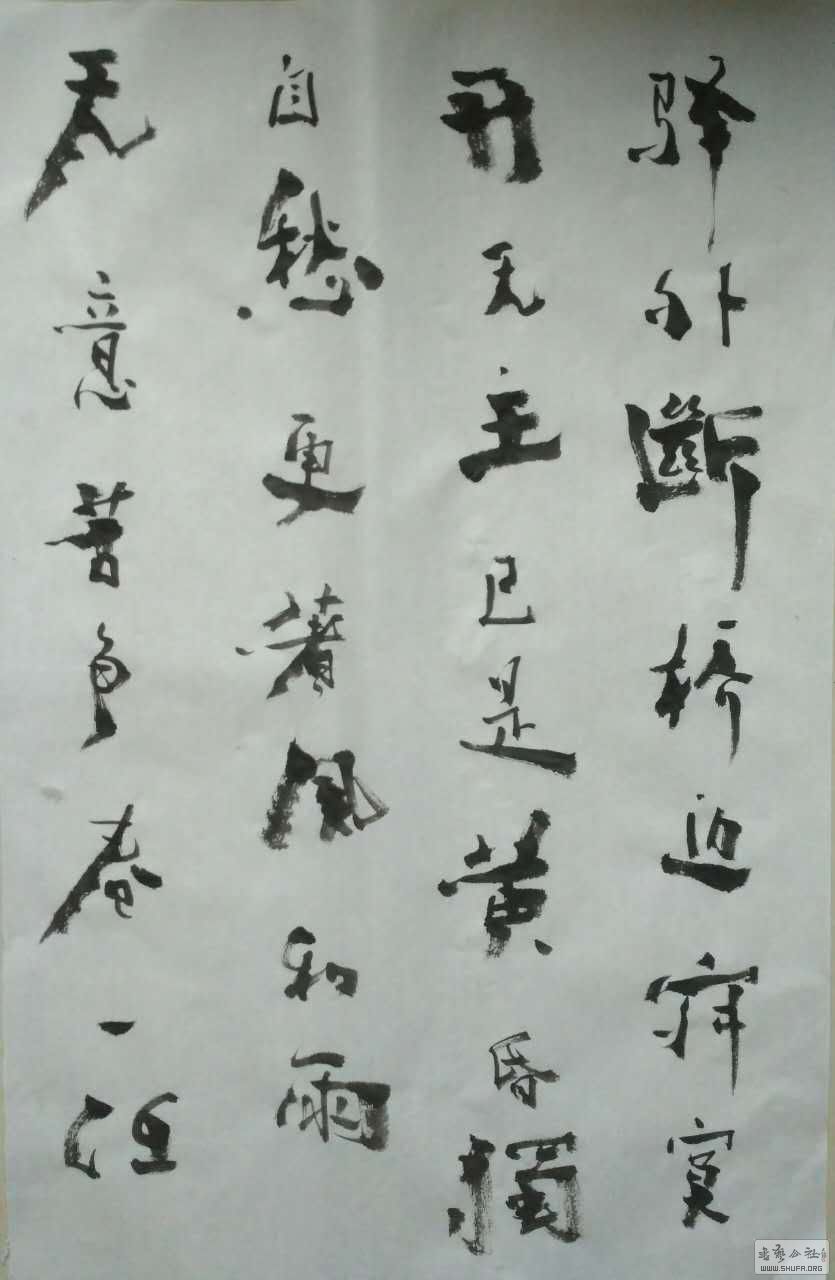 驿外斷桥近寂寞
开无主已是黄昏獨
自愁更著风和雨
无意苦争春一任
书艺公社
WWW.SHUFA.ORG